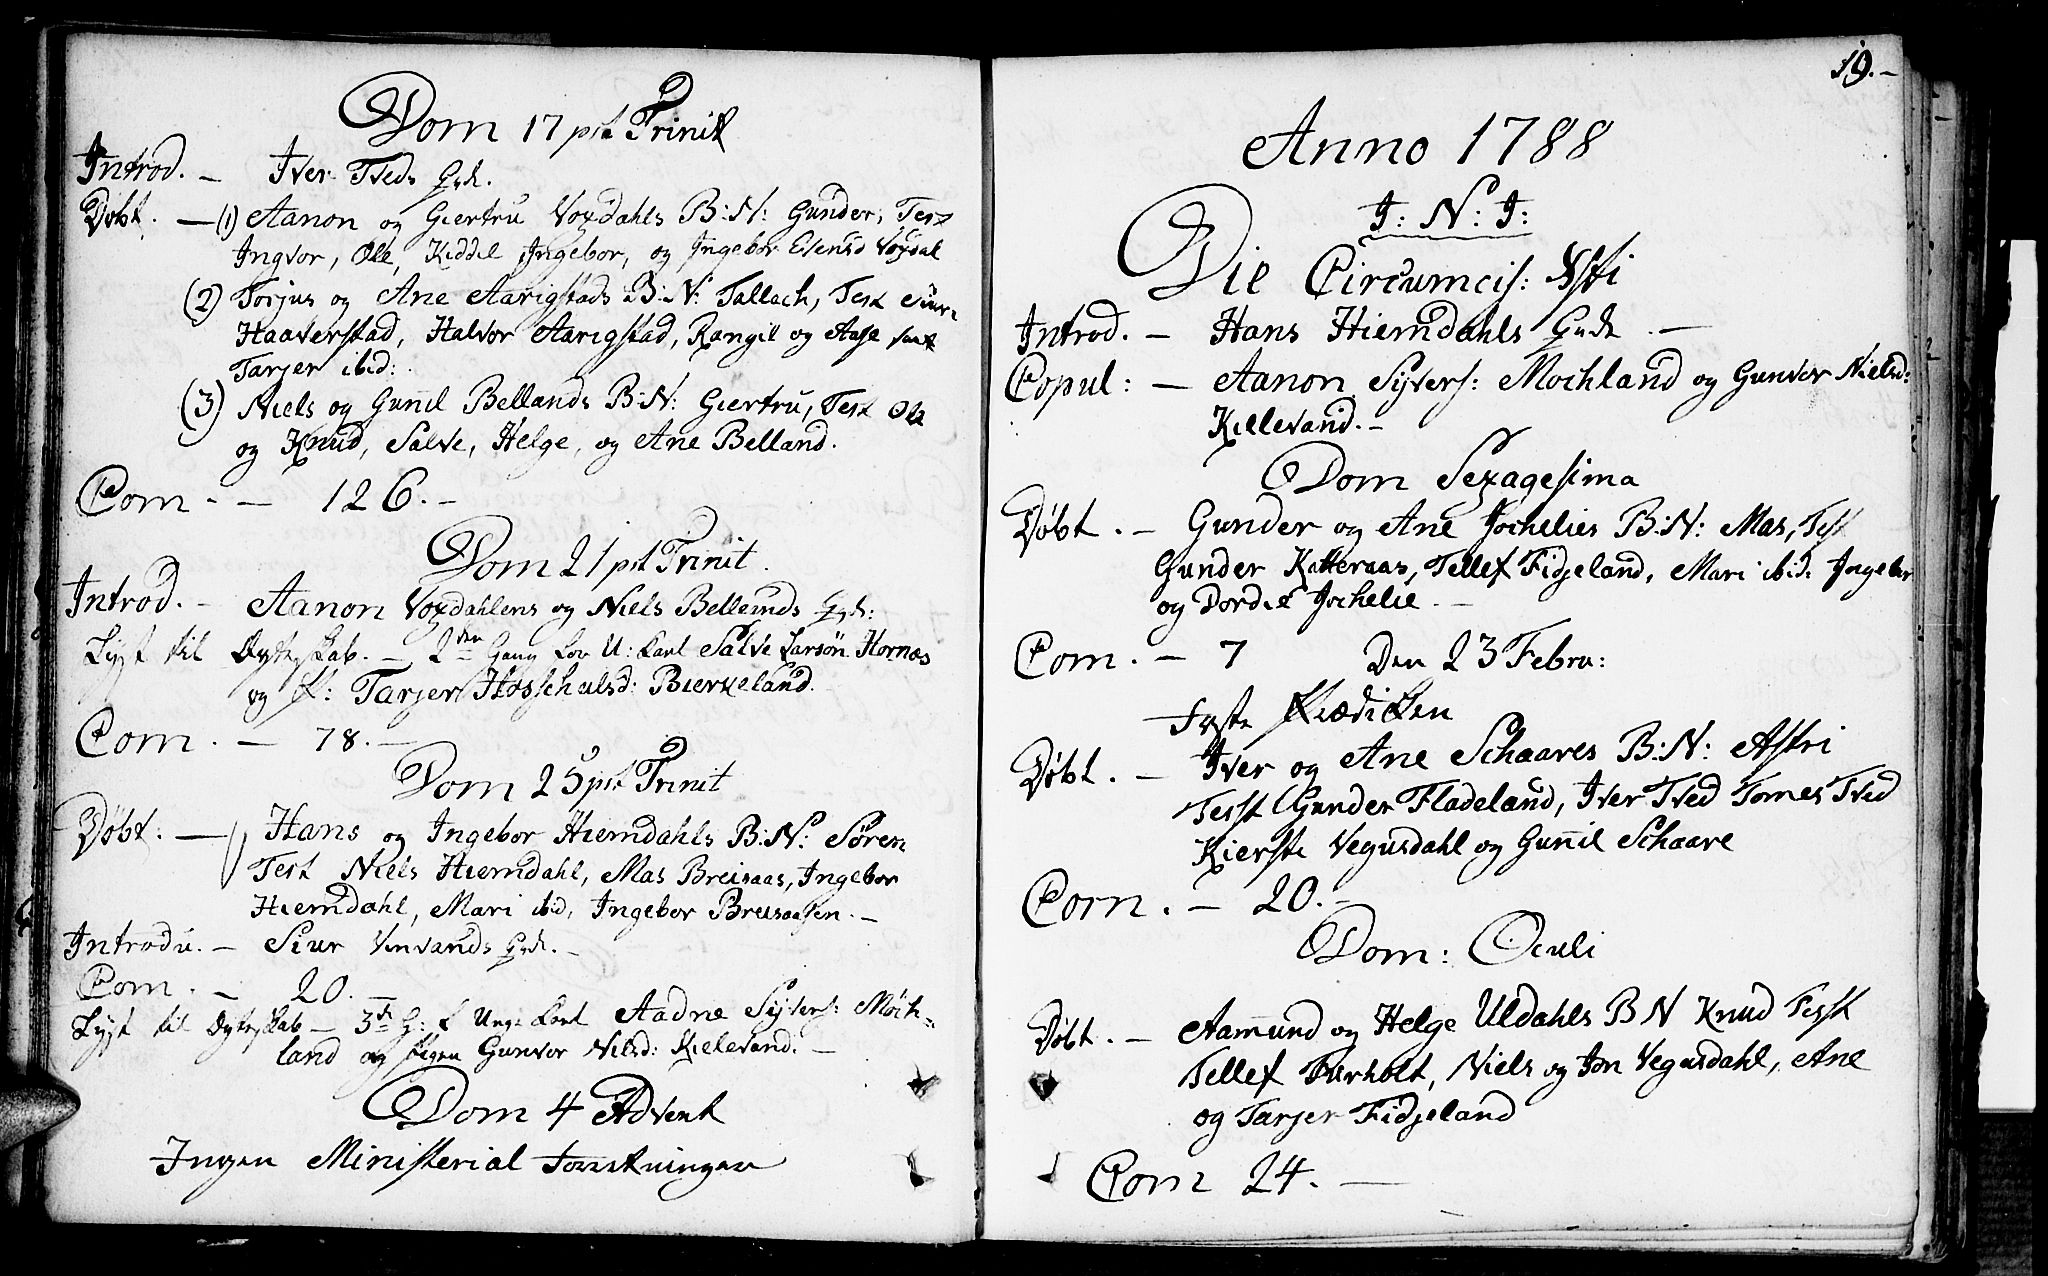 Dom 17 pst Trinit
Introd. - Iver Tveds
Døbt. - (1) Aanon og Giertru Voxdahls B:N: Gunder, Test
Ingvor, Ole, Kiddel Ingebor, og Ingebor Voxdal
(2) Torjus og Ane Aarigstads B:N: Tallach, Test Siur
Haaverstad, Halvor Aarigstad, Rangil og Aase samt
Tarjer ibid:
(3) Niels og Gunil Bellands B:N: Giertru, Test Ole
og Knud, Salve, Helge, og Ane Belland.
Com. - 126. -
Dom 21 pst Trinit.
Introd. - Aanon Voxdahlens og Niels Bellands
Lyst til Ægteskab. - 2den Gang for U: Karl Salve Larsøn Hornæs
og P: Tarjer Bierkeland.
Com. - 78. -
Dom 25 pst Trinit
Døbt. - Hans og Ingebor Hiemdahls B:N: Søren
Test Niels Hiemdahl, Mas Breisaas, Ingebor
Hiemdahl, Mari ibid, Ingebor Breisaasen. -
Introdu. - Siur Vervands
Com. - 20. -
Lyst til Ægteskab - 3de G: f Unge Karl Aadne Syvers: Moch-
land og Pigen Gunvor Nilsd: Kielevand. -
Dom 4 Advent
Ingen Ministerial Forretninger
19. -
Anno 1788
I: N: I:
Die Circumcis: Xsti
Introd. - Hans Hiemdahls -
Copul: - Aanon Syvers: Mochland og Gunvor Nielsd:
Killevand. -
Dom Sexagesima
Døbt. - Gunder og Ane Jochelies B:N: Mas, Test
Gunder Katteraas, Tellef Fidjeland, Mari ibid: Ingebor
og Dordie Jochelie. -
Com. - 7 Den 23 Febru:
Døbt. - Iver og Ane Schaares B:N: Astri
Test Gunder Fladeland, Iver Tved Tomes Tved
Kierste Vegusdahl og Gunil Schaare
Com. - 20. -
Dom: Oculi
Døbt. - Aamund og Helge Uldahls B N Knud Test
Tellef, Niels og Jon Vegusdahl, Ane
og Tarjer Fidjeland
Com 24. -